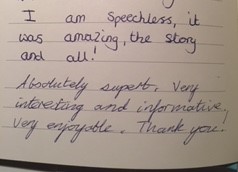 I am speechless, it
was amazing, the story
and all!
Absolutely superb. Very
interesting and informative,
very enjoyable. Thank you!